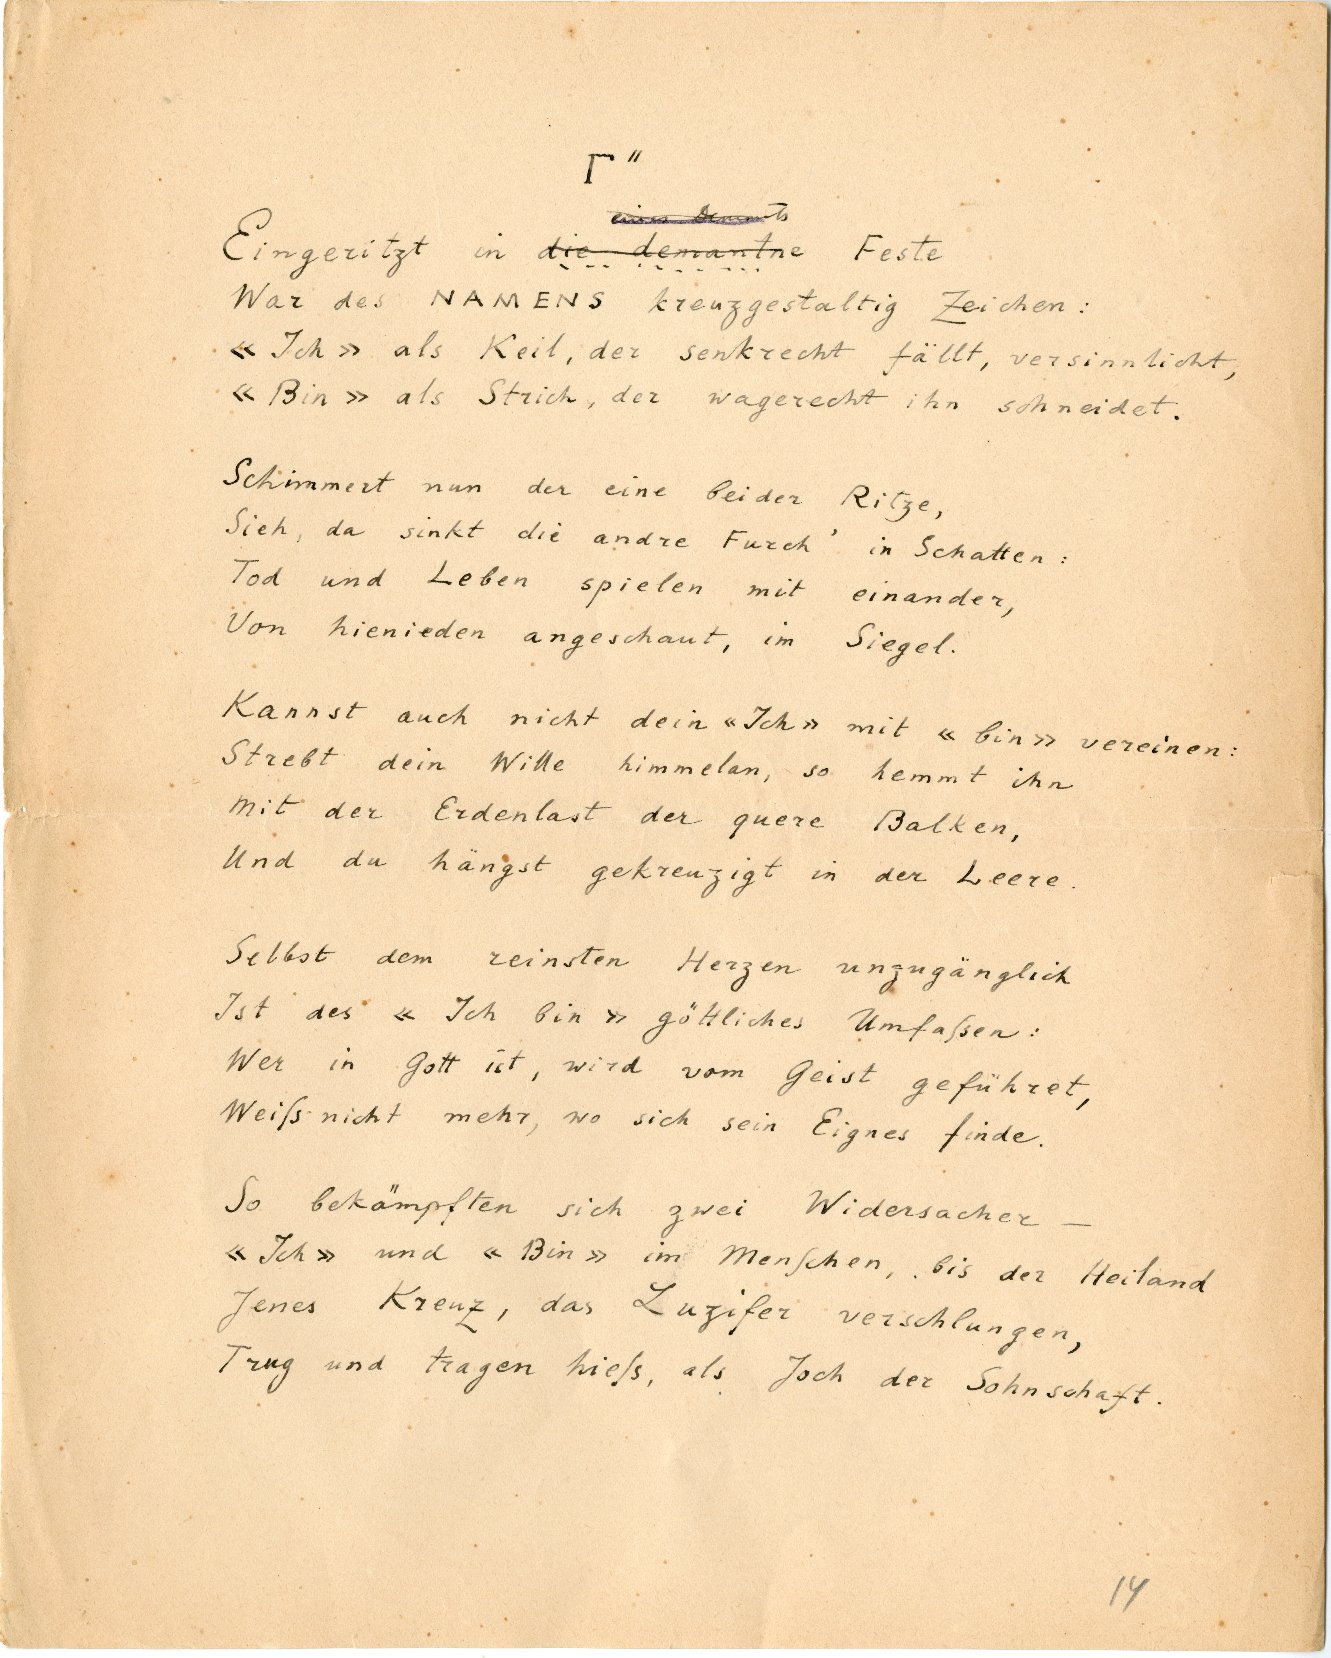 Γ"
eines Demants
Eingeritzt in die demantne Feste
War des NAMENS kreuzgestaltig Zeichen:
«Ich» als Keil, der senkrecht fällt, versinnlicht,
«Bin» als Strich, der wagerecht ihn schneidet.
Schimmert nun der eine beider Ritze,
Sieh, da sinkt die andre Furch' in Schatten:
Tod und Leben spielen mit einander,
Von hienieden angeschaut, im Siegel.
Kannst auch nicht dein «Ich» mit «bin» vereinen:
Strebt dein Wille himmelan, so hemmt ihn
Mit der Erdenlast der quere Balken,
Und du hängst gekreuzigt in der Leere.
Selbst dem reinsten Herzen unzugänglich
Ist des «Ich bin» göttliches Umfaſsen:
Wer in Gott ist, wird vom Geist geführet,
Weiſs nicht mehr, wo sich sein Eignes finde.
So bekämpften sich zwei Widersacher —
«Ich» und «Bin» im Menſchen, bis der Heiland
Jenes Kreuz, das Luzifer verschlungen,
Trug und tragen hieſs, als Joch der Sohnschaft.
14